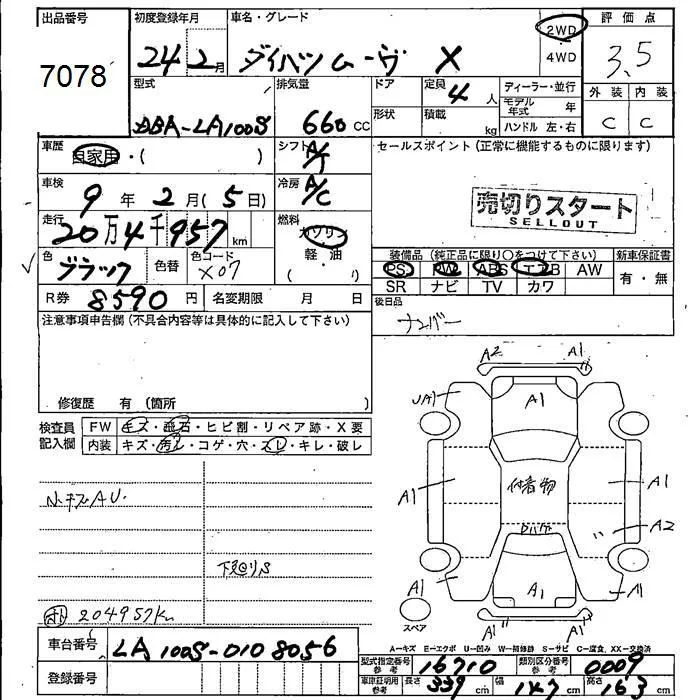 出品番号 初度登録年月 車名・グレード 評価点
7078 24 2月 ダイハツ ムーヴ X 2WD 4WD 3.5
型式 排気量 ドア 定員 ディーラー・並行 外装 内装
DBA-LA100S 660 CC 形状 4 人 積載 kg モデル年式 年 ハンドル 左・右 C C
車歴 自家用・( ) シフト A/T セールスポイント(正常に機能するものに限ります)
車検 9年 2月(5日) 冷房 A/C 売切りスタート
SELLOUT
走行 20万4千957km 燃料 ガソリン 軽・油 ( )
色 ブラック 色替 色コード X07
装備品(純正品に限り○をつけて下さい) 新車保証書
PS PW ABS エアB AW 有・無
SR ナビ TV カワ
R券 8590円 名変期限 月 日 後日品
ナンバー
注意事項申告欄(不具合内容等は具体的に記入して下さい)
修復歴 有(箇所 )
検査員記入欄 FW キズ・飛石・ヒビ割・リペア跡・X要
内装 キズ・汚レ・コゲ・穴・スレ・キレ・破レ
A2 A1
UA1 A1
A1 付着物 A1
A2
A1 A1 A1
スペア A1 A1
下廻りS
204957km
A−キズ E−エクボ U−凹み W−補修跡 S−サビ C−腐食、XX−交換済
車台番号 LA100S-0108056 型式指定番号 参考 16710 類別区分番号 参考 0009
登録番号 車庫証明用 参考 長さ 339cm 幅 147cm 高さ 163cm